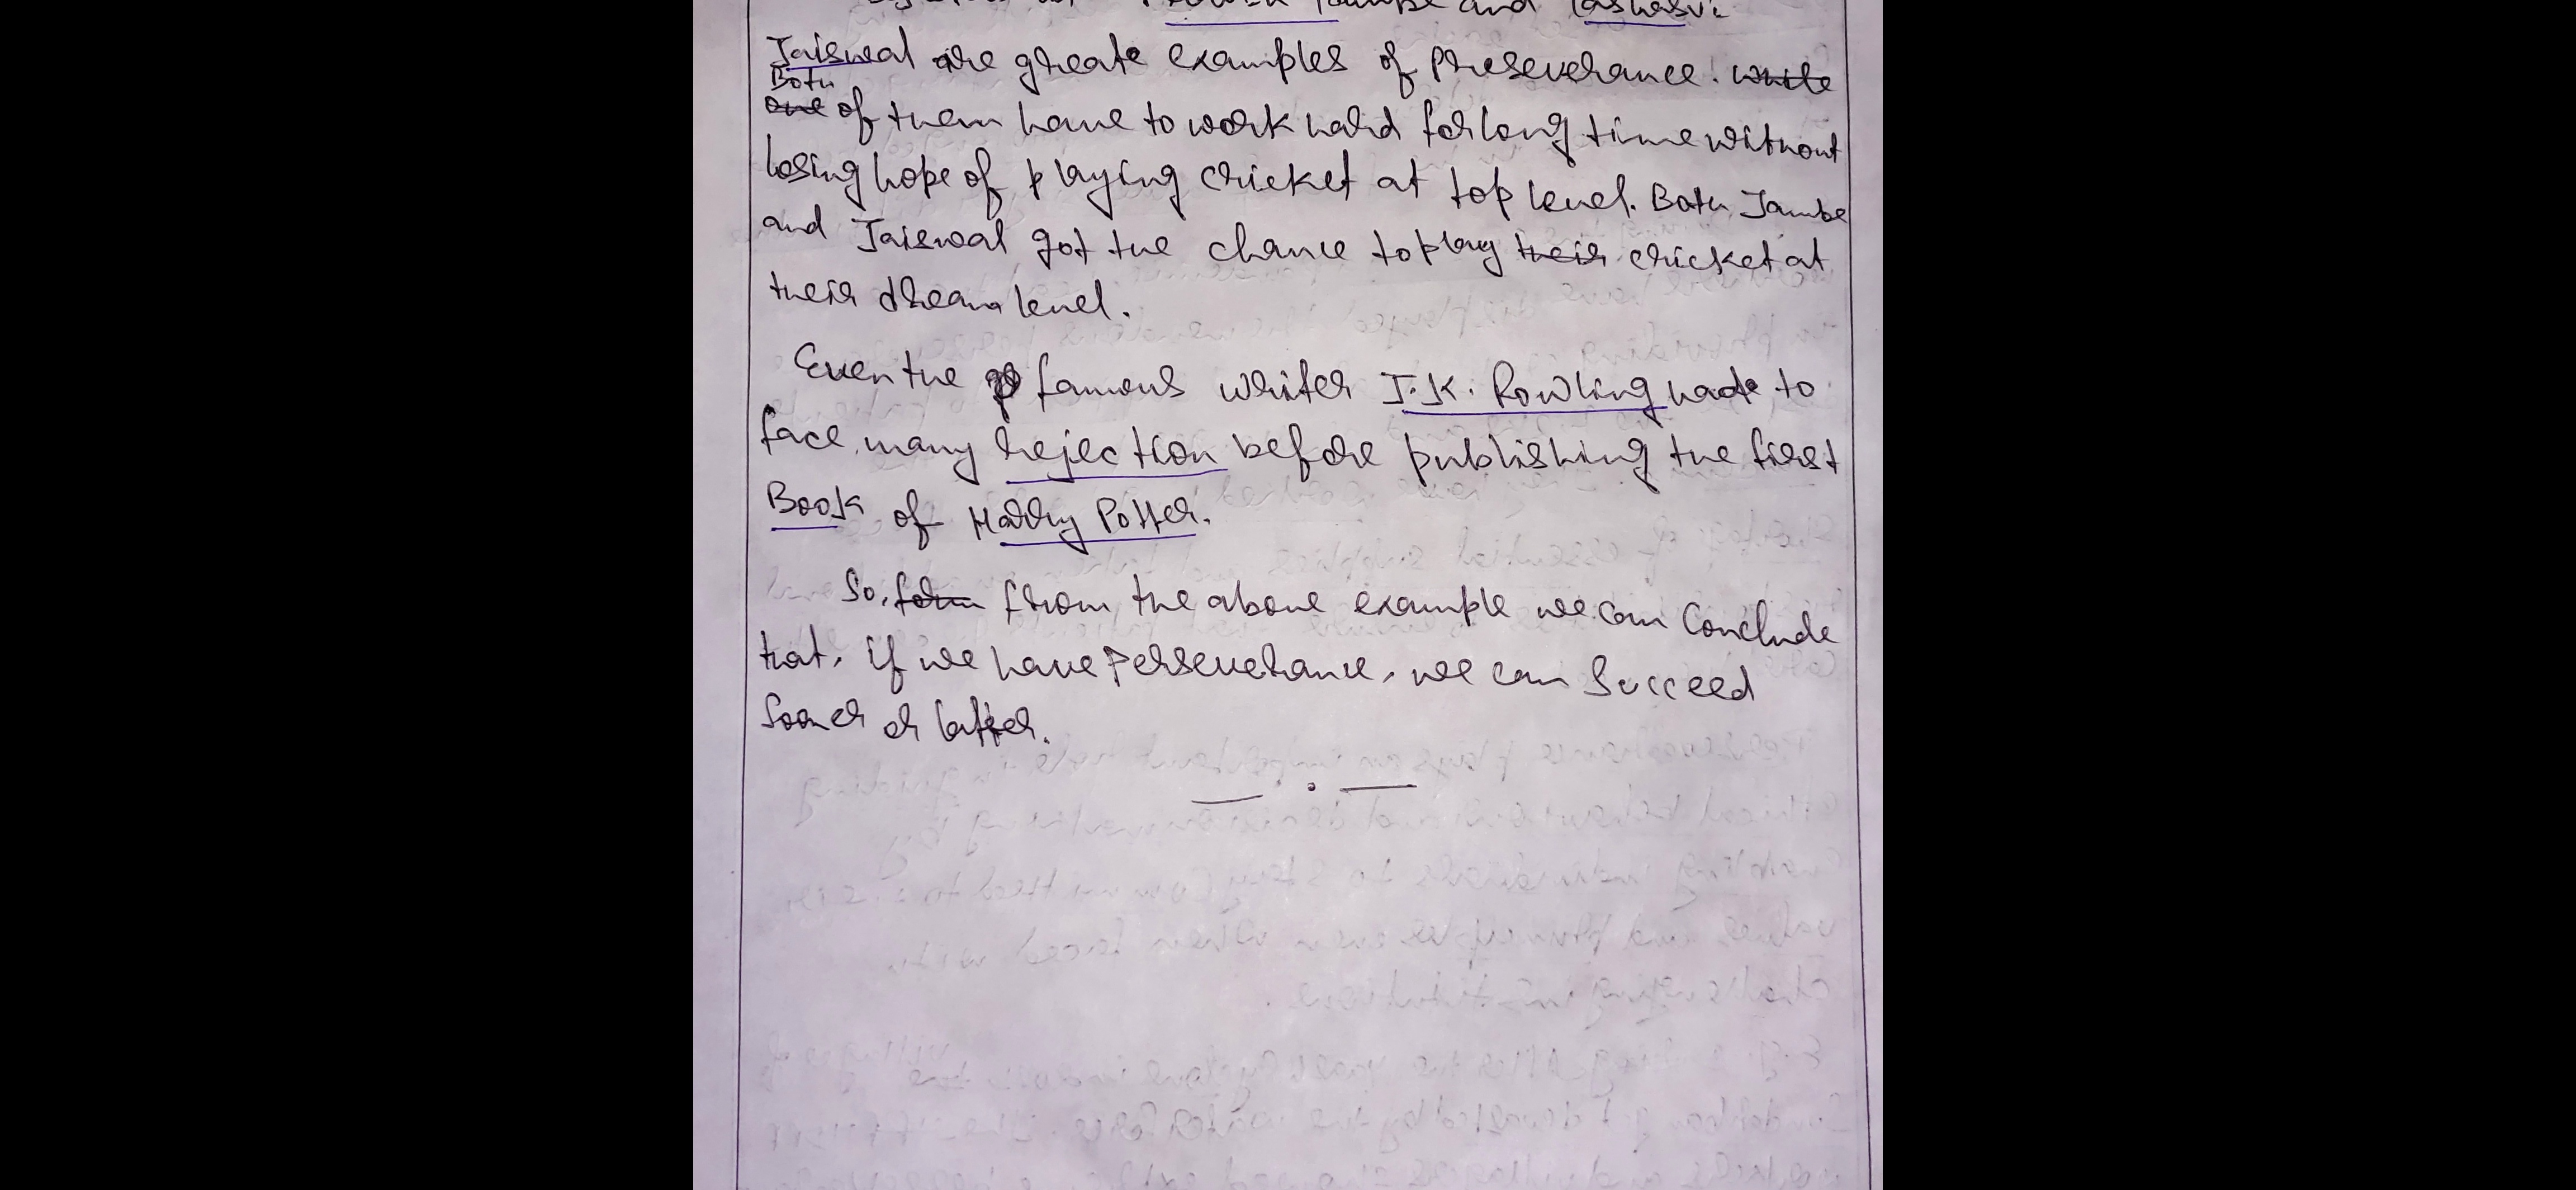 Tambe and Yashasvi
Jaiswal are greate examples of Preseverance. while
Both
one of them have to work hard for long time without
losing hope of playing cricket at top level. Both Tambe
and Jaiswal got the chance to play their cricket at
their dream level.
Even the famous writer J.K. Rowling hade to
face many rejection before publishing the first
Book of Harry Potter.
So, form from the above example we can Conclude
that, if we have Perseverance, we can Succeed
Sooner or latter.